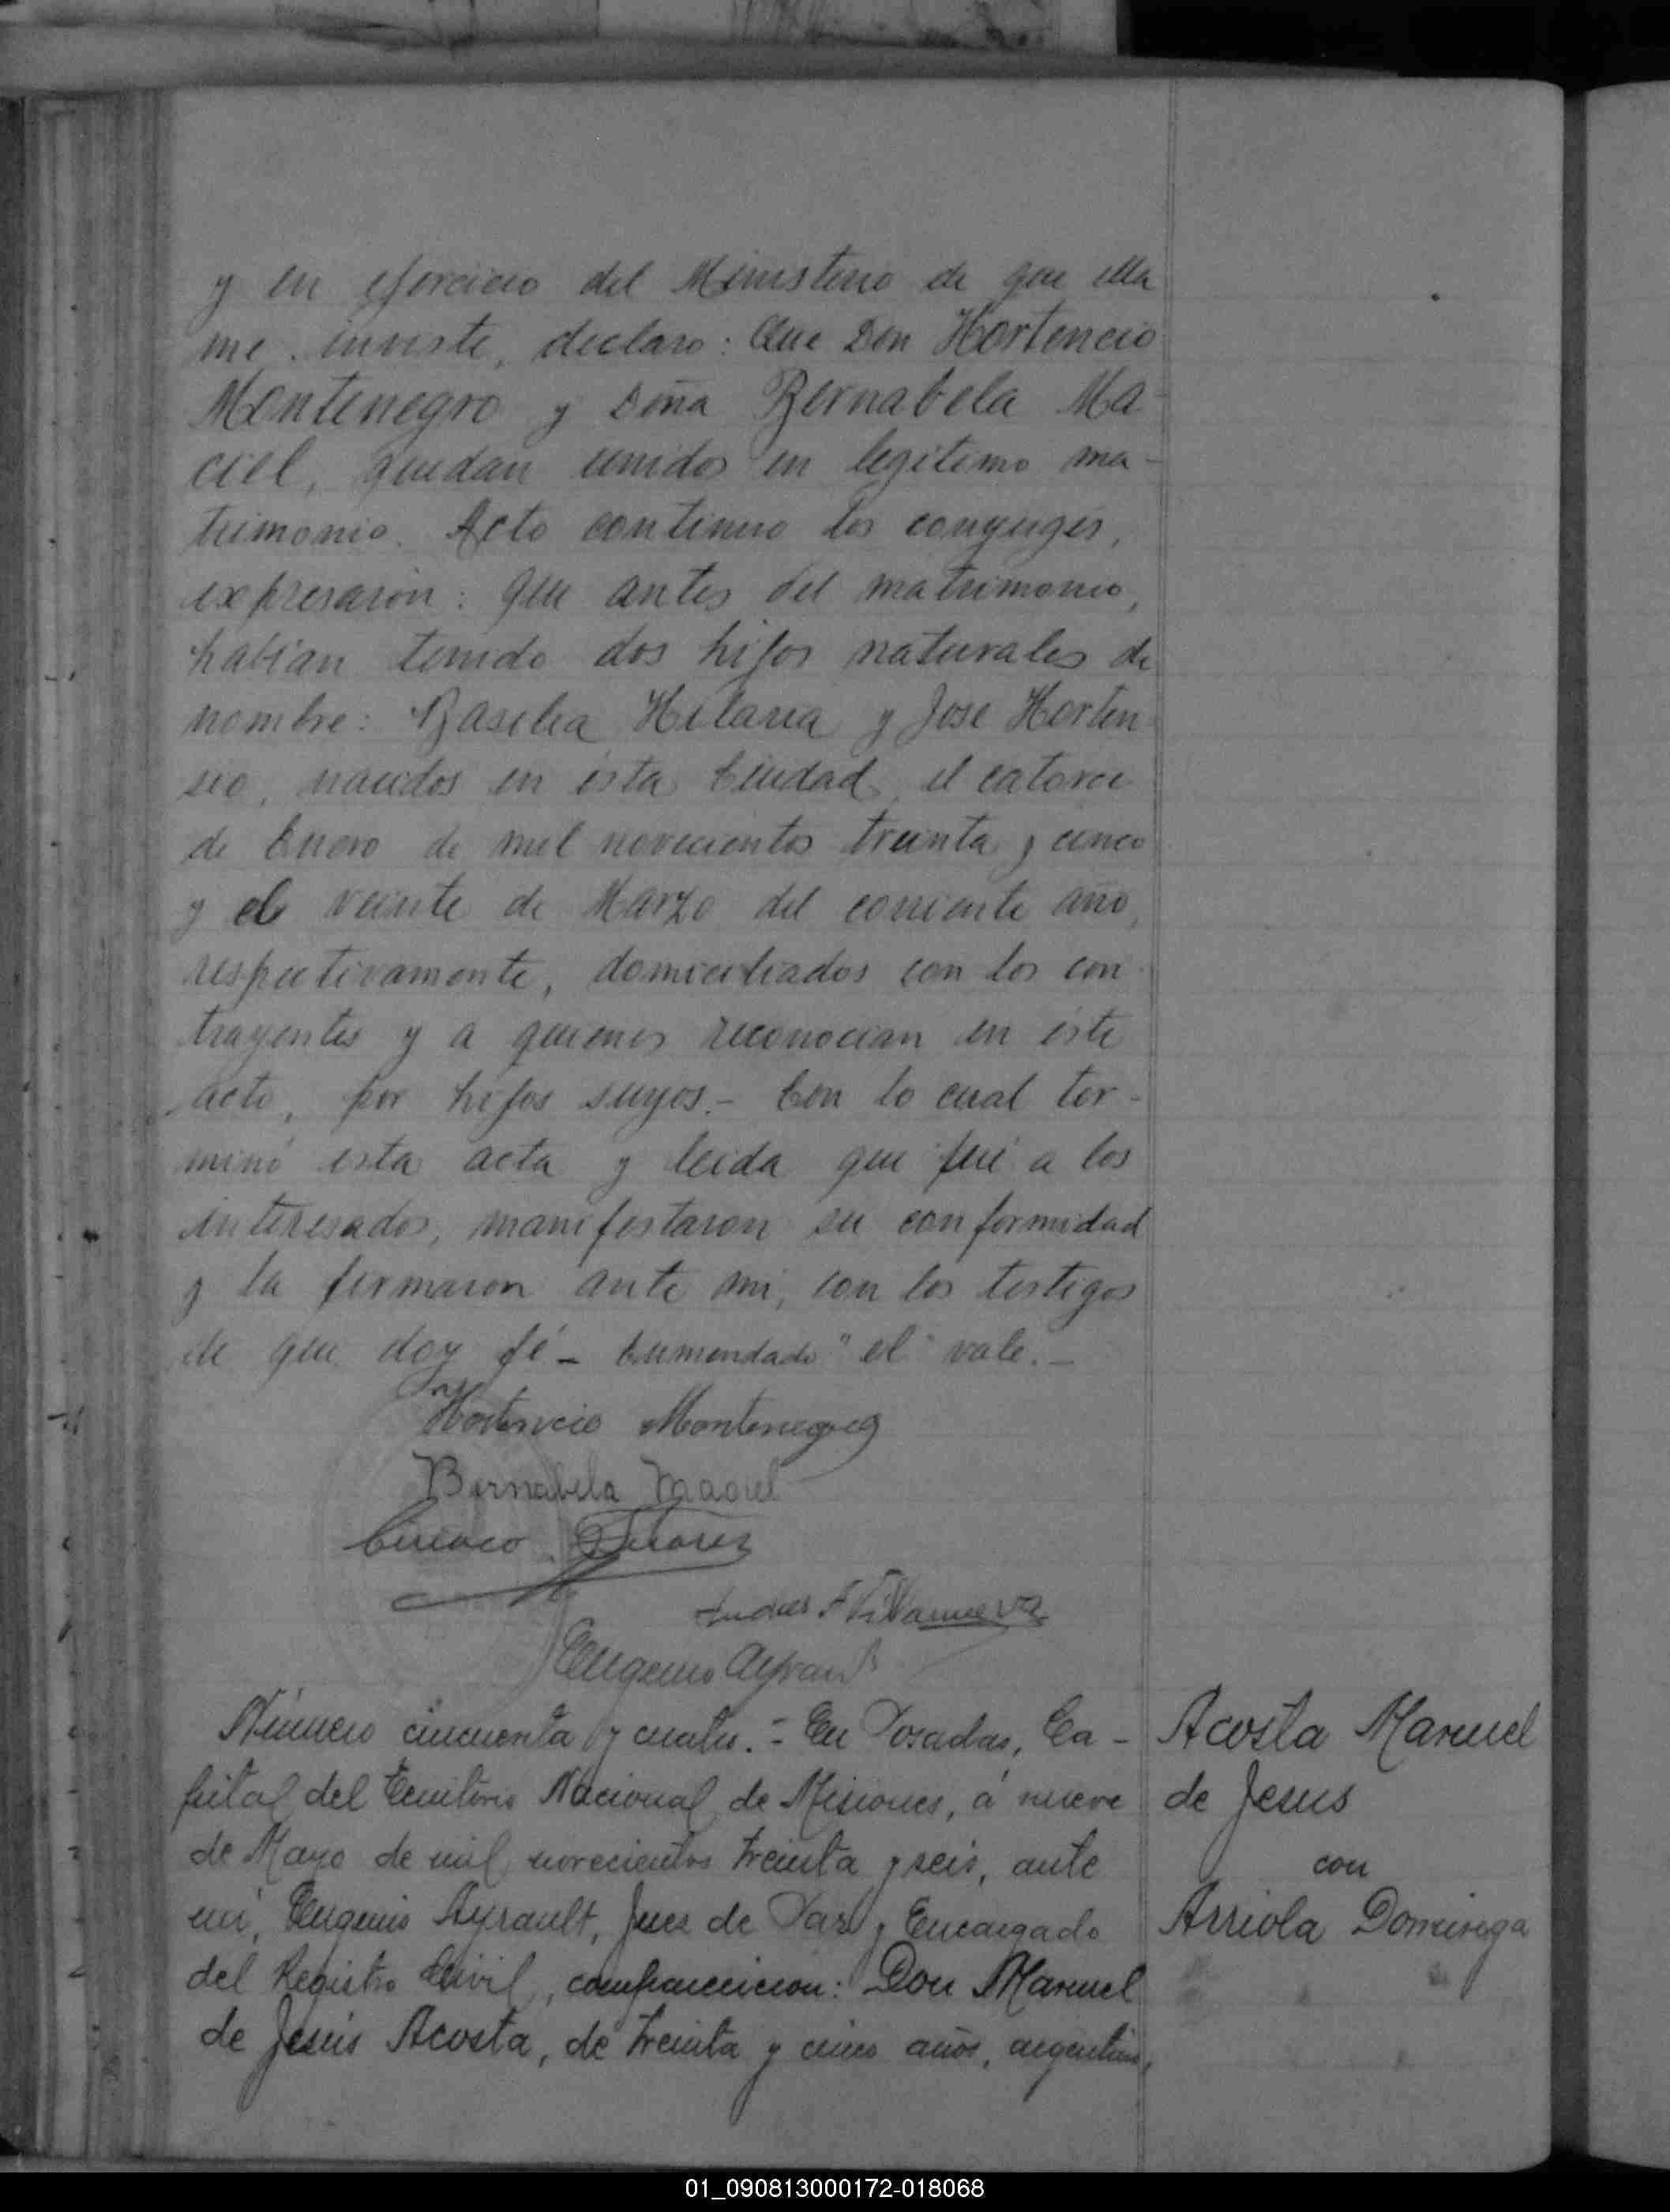 y en ejercicio del Ministerio de que ella
me inviste, declaro: Que Don Hortencio
Montenegro y Doña Bernabela Ma-
ciel, quedan unidos en legitimo ma-
trimonio. Acto continuo los conyuges,
expresaron: que antes del matrimonio,
habian tenido dos hijos naturales de
nombre: Basilia Hilaria y Jose Horten
sio, nacidos en ésta Ciudad, el catorce
de Enero de mil novecientos treinta y cinco
y el veinte de Marzo del corriente año,
respectivamente, domiciliados con los con-
trayentes y a quienes reconocian en éste
acto, por hijos suyos.- Con lo cual ter-
minó esta acta y leida que fué a los
interesados, manifestaron su conformidad
y la firmaron ante mi, con los testigos
de que doy fé- Enmendado "el" vale.-
Hortencio Montenegro
Bernabela Maciel
Ciriaco Juarez
Andres F Villanueva
Eugenio Ayrault
Número cincuenta y cuatro.- En Posadas, Ca-
pital del Territorio Nacional de Misiones, á nueve
de Mayo de mil novecientos treinta y seis, ante
mi, Eugenio Ayrault, Juez de Paz y Encargado
del Registro Civil, comparecieron: Don Manuel
de Jesús Acosta, de treinta y cinco años, argentino,
Acosta Manuel
de Jesus
con
Arriola Dominga
01_090813000172-018068